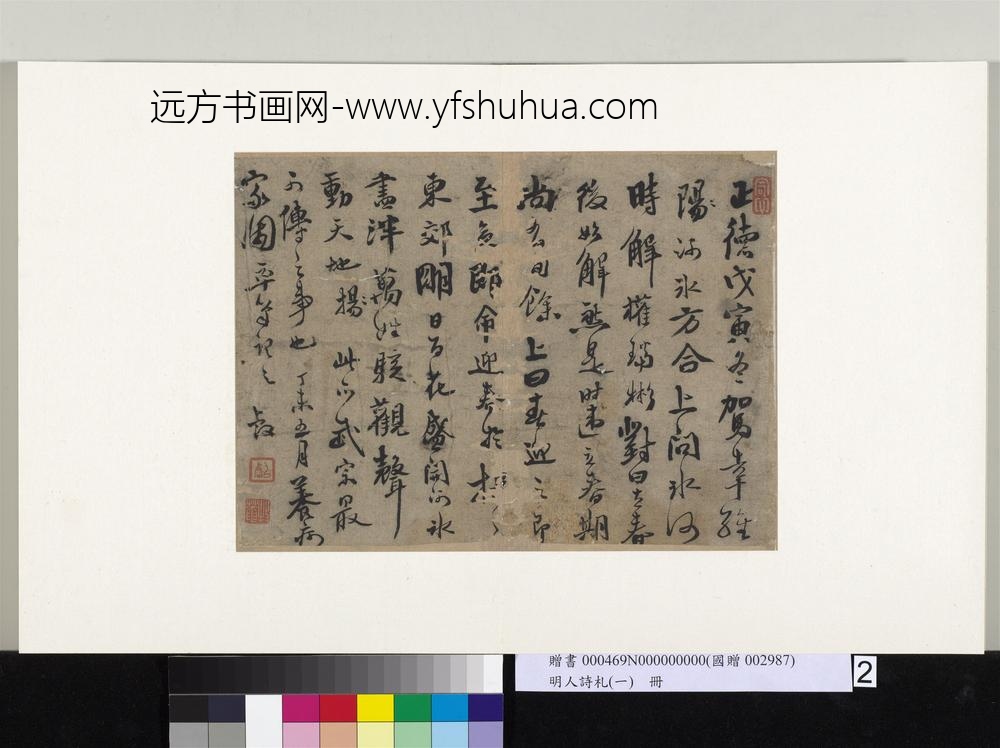 远方书画网-www.yfshuhua.com
正德戊寅冬駕幸維
陽河氷方合上問氷何
時解權璫彬對曰立春
後始解蓋是時違立春期
尚五旬餘上曰春迎之即
至矣即命迎春於
東郊明日百花盛開河氷
盡泮萬姓駭觀聲
動天地揚 此亦武宗最
可傳之事也 丁未五月養病
家園 記之
贈書 000469N000000000(國贈 002987)
明人詩札(一) 冊
2